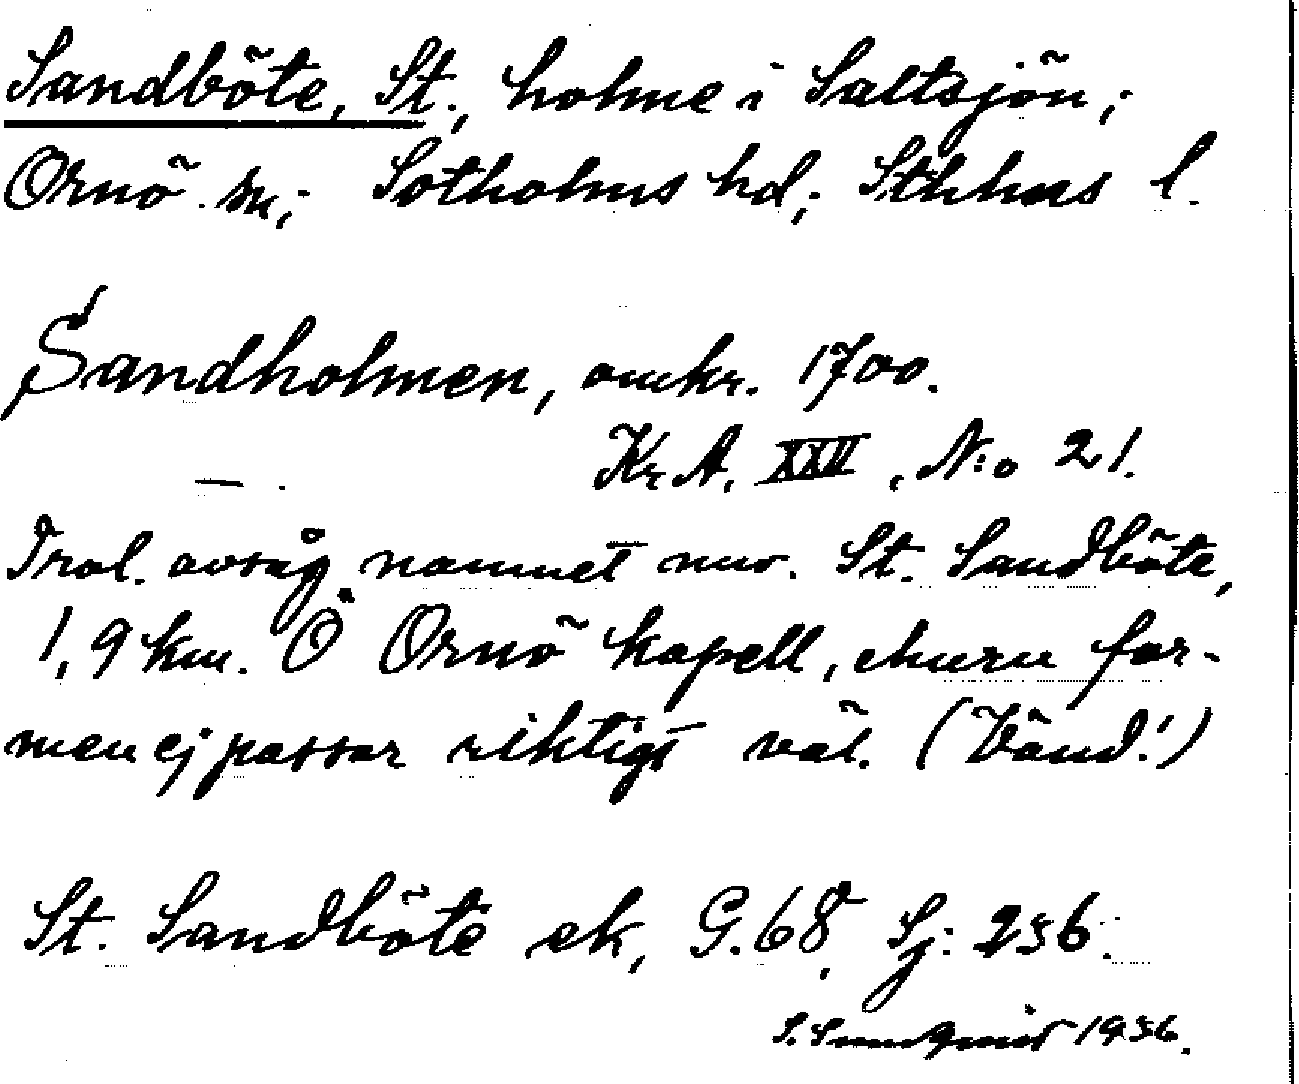 Sandböte, St., holme i Saltsjön;
Ornö sn; Sotholms hd; Sthlms l.
Sandholmen, omkr. 1700.
Kr A. XXVI, N:o 21.
— .
Trol. avsåg namnet nuv. St. Sandböte,
1,9 km. Ö Ornö kapell, ehuru for-
men ej passar riktigt väl. (Vänd!)
St. Sandböte ek, G. 68, Sj: 256.
S. Sundqvist 1936.